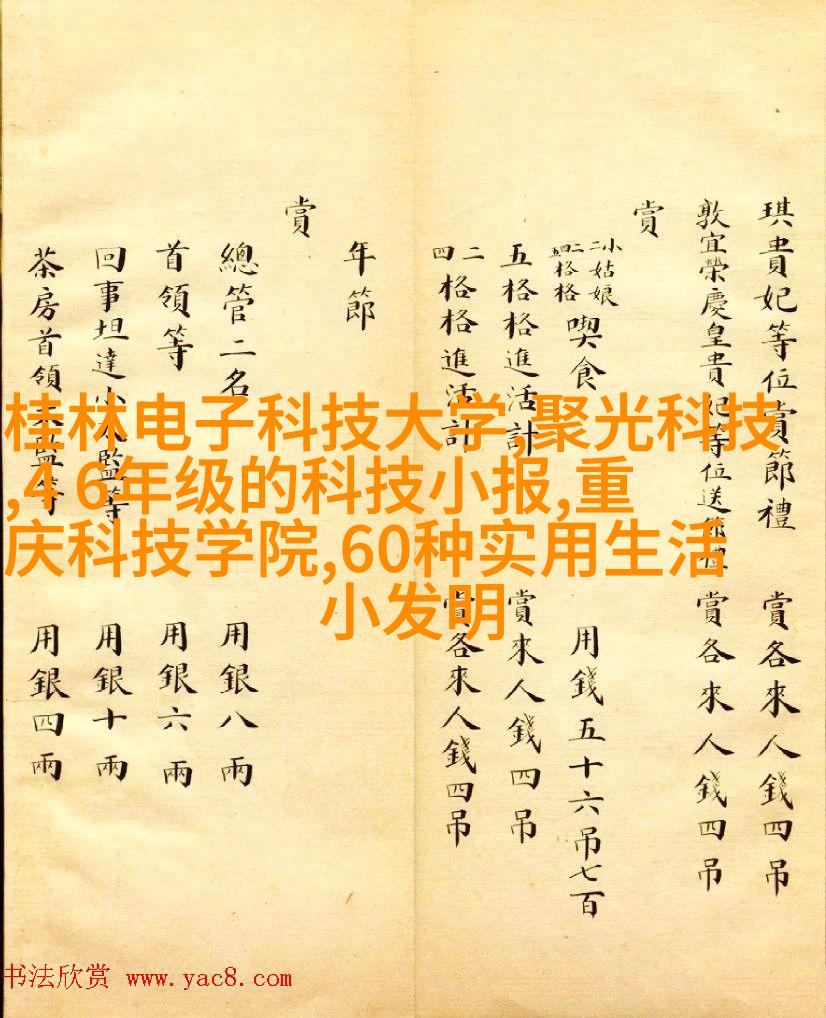 琪貴妃等位賞節禮 賞各來人錢四吊
敦宜榮慶皇貴妃等位送節禮 賞各來人錢四吊
賞
小姑娘 格格 喫食 用錢五十六吊七百
五格格進活計 賞來人錢四吊
二四格格進活計 賞各來人錢四吊
年節
賞
總管二名 用銀八兩
首領等 用銀六兩
回事坦達小太監等 用銀十兩
茶房首領太監等 用銀四兩
桂林电子科技大学,聚光科技
,4 6年级的科技小报,重
庆科技学院,60种实用生活
小发明
书法欣赏 www.yac8.com